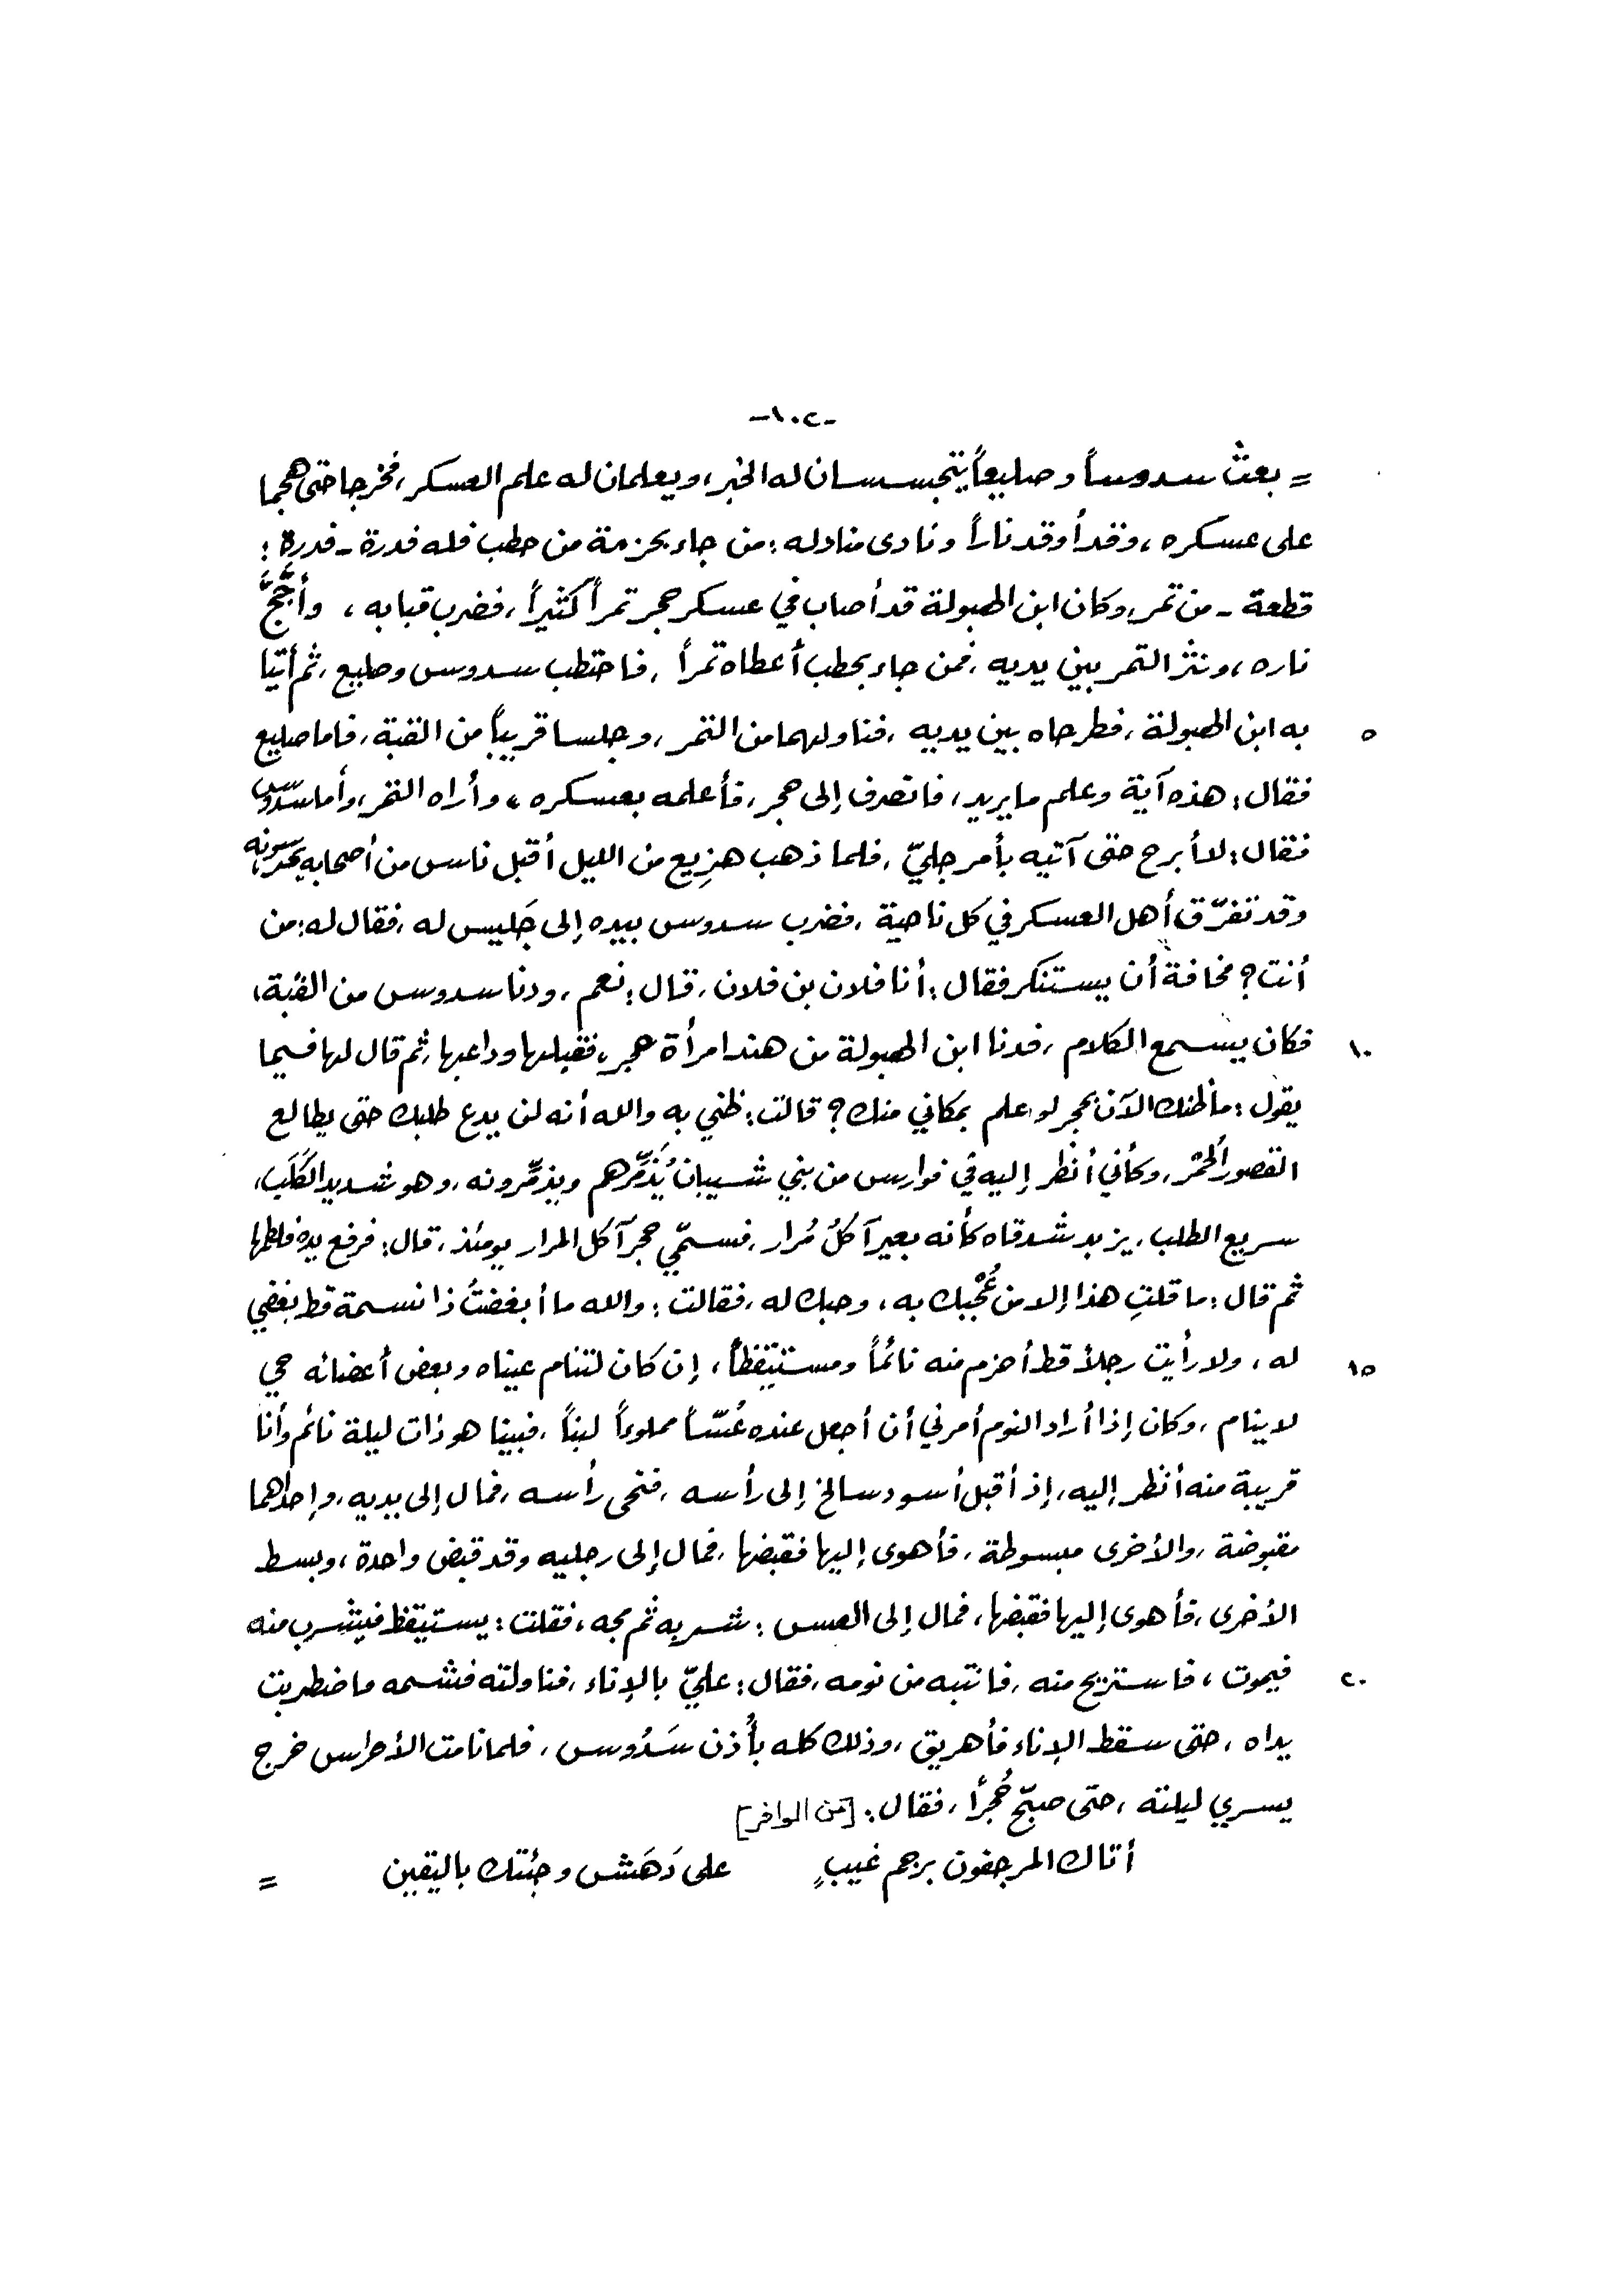 -١٠٢-
= بعث سدوساً وصليعاً يتجسسان له الخبر، ويعلمان له علم العسكر، فخرجا حتى هجما
على عسكره، وقد أوقد ناراً ونادى مناد له: من جاء بحزمة من حطب فله فدرة - فدرة:
قطعة - من تمر، وكان ابن الهبولة قد أصاب في عسكر حجر تمراً كثيراً، فضرب قبابه، وأجَّجَ
ناره، ونثر التمر بين يديه، فمن جاء بحطب أعطاه تمراً، فاحتطب سدوس وصليع، ثم أتيا
٥ به ابن الهبولة، فطرحاه بين يديه، فناولهما من التمر، وجلسا قريباً من القبة، فاما صليع
فقال: هذه آية وعلم ما يريد، فانصرف إلى حجر، فأعلمه بعسكره، وأراه التمر، وأما سدوس
فقال: لا أبرح حتى آتيه بأمر جليّ، فلما ذهب هزِيع من الليل أقبل ناس من أصحابه يحرسونه،
وقد تفرّق أهل العسكر في كل ناحية، فضرب سدوس بيده إلى جَليس له، فقال له: من
أنت؟ مخافة أن يستنكر فقال: أنا فلان بن فلان، قال: نعم، ودنا سدوس من القبة،
١٠ فكان يسمع الكلام، فدنا ابن الهبولة من هند امرأة حجر، فقبلها وداعبها، ثم قال لها فيما
يقول: ما ظنك الآن بحجر لو علم بمكاني منك؟ قالت: ظني به والله أنه لن يدع طلبك حتى يطالع
القصور الحُمْر، وكأني أنظر إليه في فوارس من بني شيبان يُذَمِّرهم ويذمِّرونه، وهو شديد الكَلَب،
سريع الطلب، يزبد شدقاه كأنه بعير آكلُ مُرار، فسمّي حجر آكل المرار يومئذ، قال: فرفع يده فلطمها
ثم قال: ما قلتِ هذا إلا من عُجْبك به، وحبك له، فقالت: والله ما أبغضتُ ذا نسمة قط بغضي
١٥ له، ولا رأيت رجلاً قط أحزم منه نائماً ومستيقظاً، إن كان لتنام عيناه وبعض أعضائه حي
لا ينام، وكان إذا أراد النوم أمرني أن أجعل عنده عُسّاً مملوءاً لبناً، فبينا هو ذات ليلة نائم وأنا
قريبة منه أنظر إليه، إذ أقبل أسود سالخ إلى رأسه، فنحى رأسه، فمال إلى يديه، وإحداهما
مقبوضة، والأخرى مبسوطة، فأهوى إليها فقبضها، فمال إلى رجليه وقد قبض واحدة، وبسط
الأخرى، فأهوى إليها فقبضها، فمال إلى العس: شربه ثم مجه، فقلت: يستيقظ فيشرب منه
٢٠ فيموت، فاستريح منه، فانتبه من نومه، فقال: عليّ بالإناء، فناولته فشمه فاضطربت
يداه، حتى سقط الإناء فأهريق، وذلك كله بأُذن سَدُوس، فلما نامت الأحراس خرج
يسري ليلته، حتى صبّح حُجراً، فقال: [من الوافر]
أتاك المرجفون برجم غيبٍ على دَهَش وجئتك باليقين =